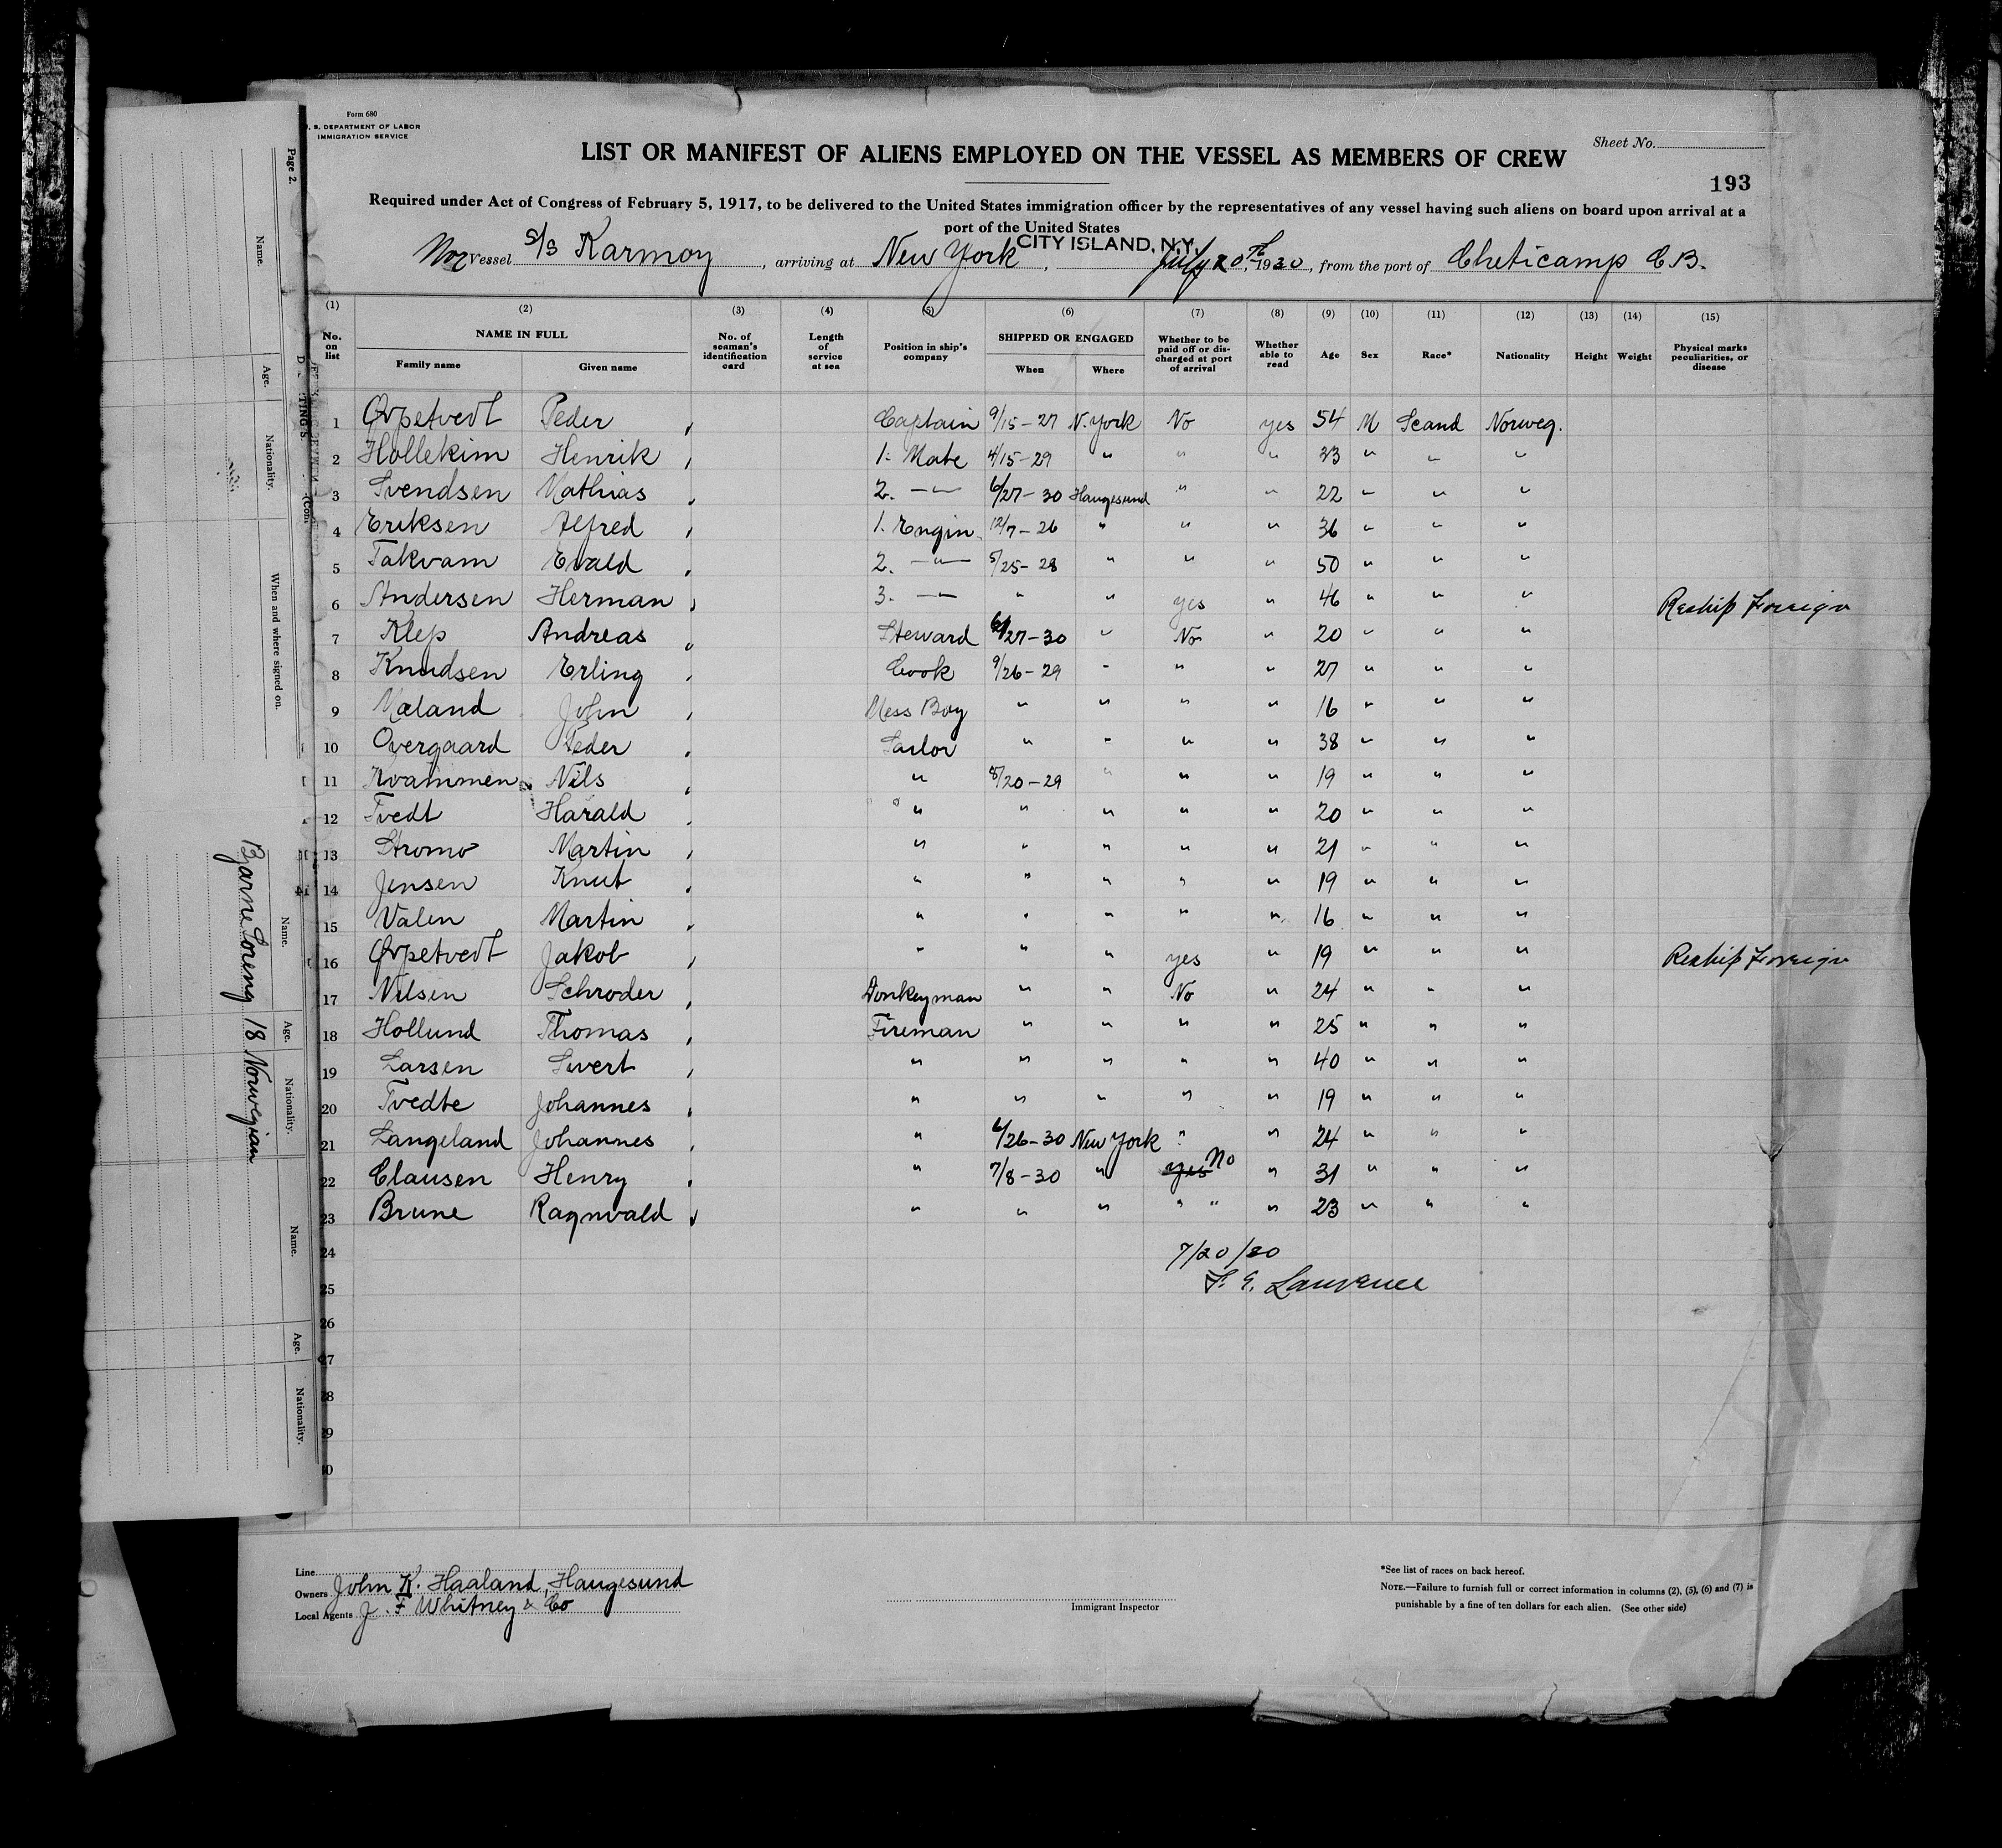 Form 680
S. DEPARTMENT OF LABOR
IMMIGRATION SERVICE
Sheet No.
LIST OR MANIFEST OF ALIENS EMPLOYED ON THE VESSEL AS MEMBERS OF CREW
193
Required under Act of Congress of February 5, 1917, to be delivered to the United States immigration officer by the representatives of any vessel having such aliens on board upon arrival at a
port of the United States
CITY ISLAND, N.Y.
Nor Vessel S/S Karmoy, arriving at New York, July 20th, 1930, from the port of Cheticamp C.B.
(1) (2) (3) (4) (5) (6) (7) (8) (9) (10) (11) (12) (13) (14) (15)
No. on list NAME IN FULL Family name Given name No. of seaman's identification card Length of service at sea Position in ship's company SHIPPED OR ENGAGED When Where Whether to be paid off or discharged at port of arrival Whether able to read Age Sex Race* Nationality Height Weight Physical marks peculiarities, or disease
1 Orpetvedt Peder Captain 9/15-27 N. York No yes 54 M Scand Norweg.
2 Hollekim Henrik 1. Mate 4/15-29 " " " 33 " " "
3 Svendsen Mathias 2. —"— 6/27-30 Haugesund " " 22 " " "
4 Eriksen Alfred 1. Engin. 12/7-26 " " " 36 " " "
5 Takvam Evald 2. —"— 5/25-28 " " " 50 " " "
6 Andersen Herman 3. —"— " " yes " 46 " " " Reship Foreign
7 Klep Andreas Steward 6/27-30 " No " 20 " " "
8 Knudsen Erling Cook 9/26-29 " " " 27 " " "
9 Mæland John Mess Boy " " " " 16 " " "
10 Overgaard Peder Sailor " " " " 38 " " "
11 Kvammen Nils " 8/20-29 " " " 19 " " "
12 Tvedt Harald " " " " " 20 " " "
13 Stromo Martin " " " " " 21 " " "
14 Jensen Knut " " " " " 19 " " "
15 Valen Martin " " " " " 16 " " "
16 Orpetvedt Jakob " " " yes " 19 " " " Reship Foreign
17 Nilsen Schroder Donkeyman " " No " 24 " " "
18 Hollund Thomas Fireman " " " " 25 " " "
19 Larsen Sivert " " " " " 40 " " "
20 Tvedte Johannes " " " " " 19 " " "
21 Langeland Johannes " 6/26-30 New York " " 24 " " "
22 Clausen Henry " 7/8-30 " yes No " 31 " " "
23 Brune Ragnvald " " " " " 23 " " "
24 7/20/30
25 F. E. Lawrence
26
27
28
29
30
Line
Owners John K. Haaland, Haugesund
Local Agents J. F Whitney & Co
Immigrant Inspector
*See list of races on back hereof.
NOTE.—Failure to furnish full or correct information in columns (2), (5), (6) and (7) is
punishable by a fine of ten dollars for each alien. (See other side)
Page 2.
Name. Age. Nationality. When and where signed on.
Name. Age. Nationality.
Bjarne Soreng 18 Norwegian
Name. Age. Nationality.